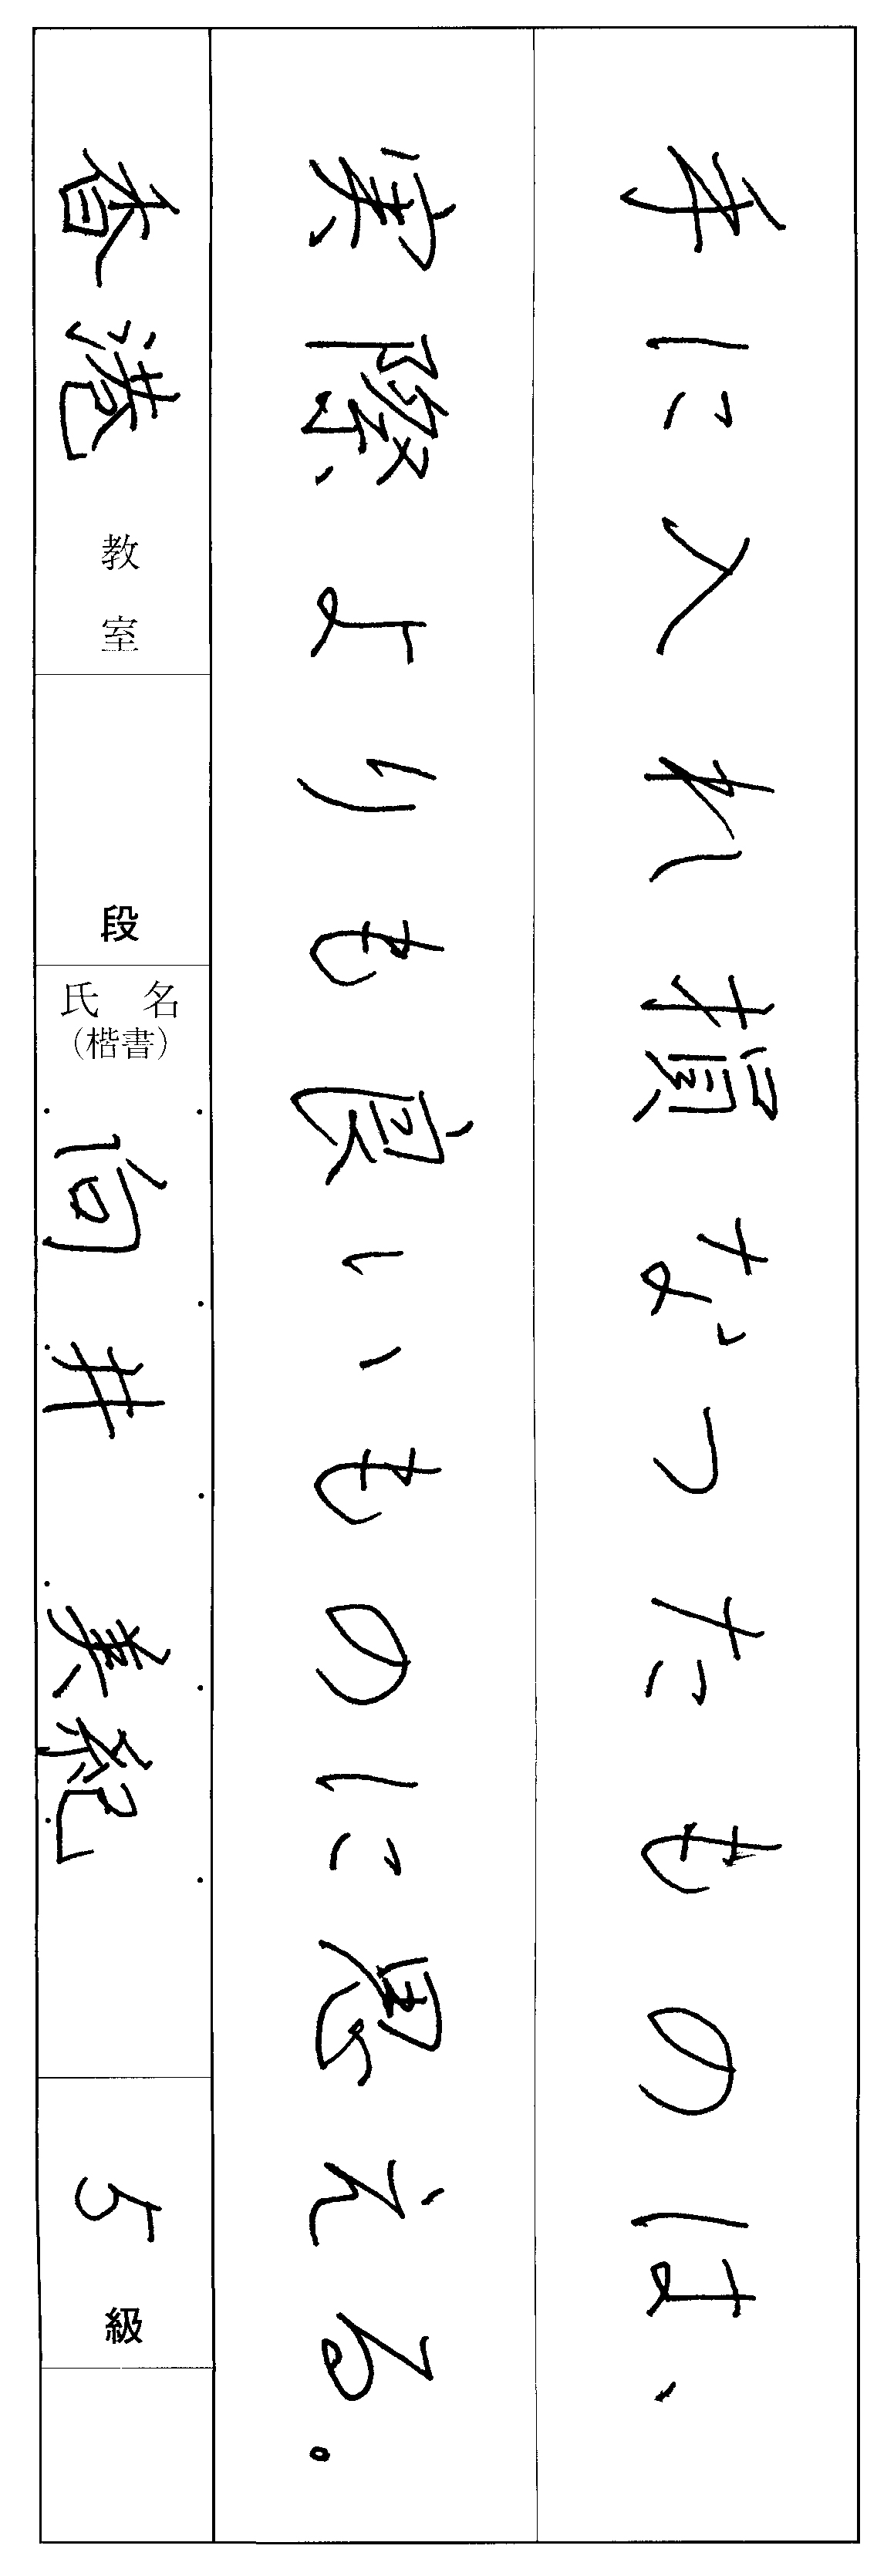 手に入れ損なったものは、
実際よりも良いものに思える。
香港教室
段
氏名
(楷書)
向井 美紀
5級